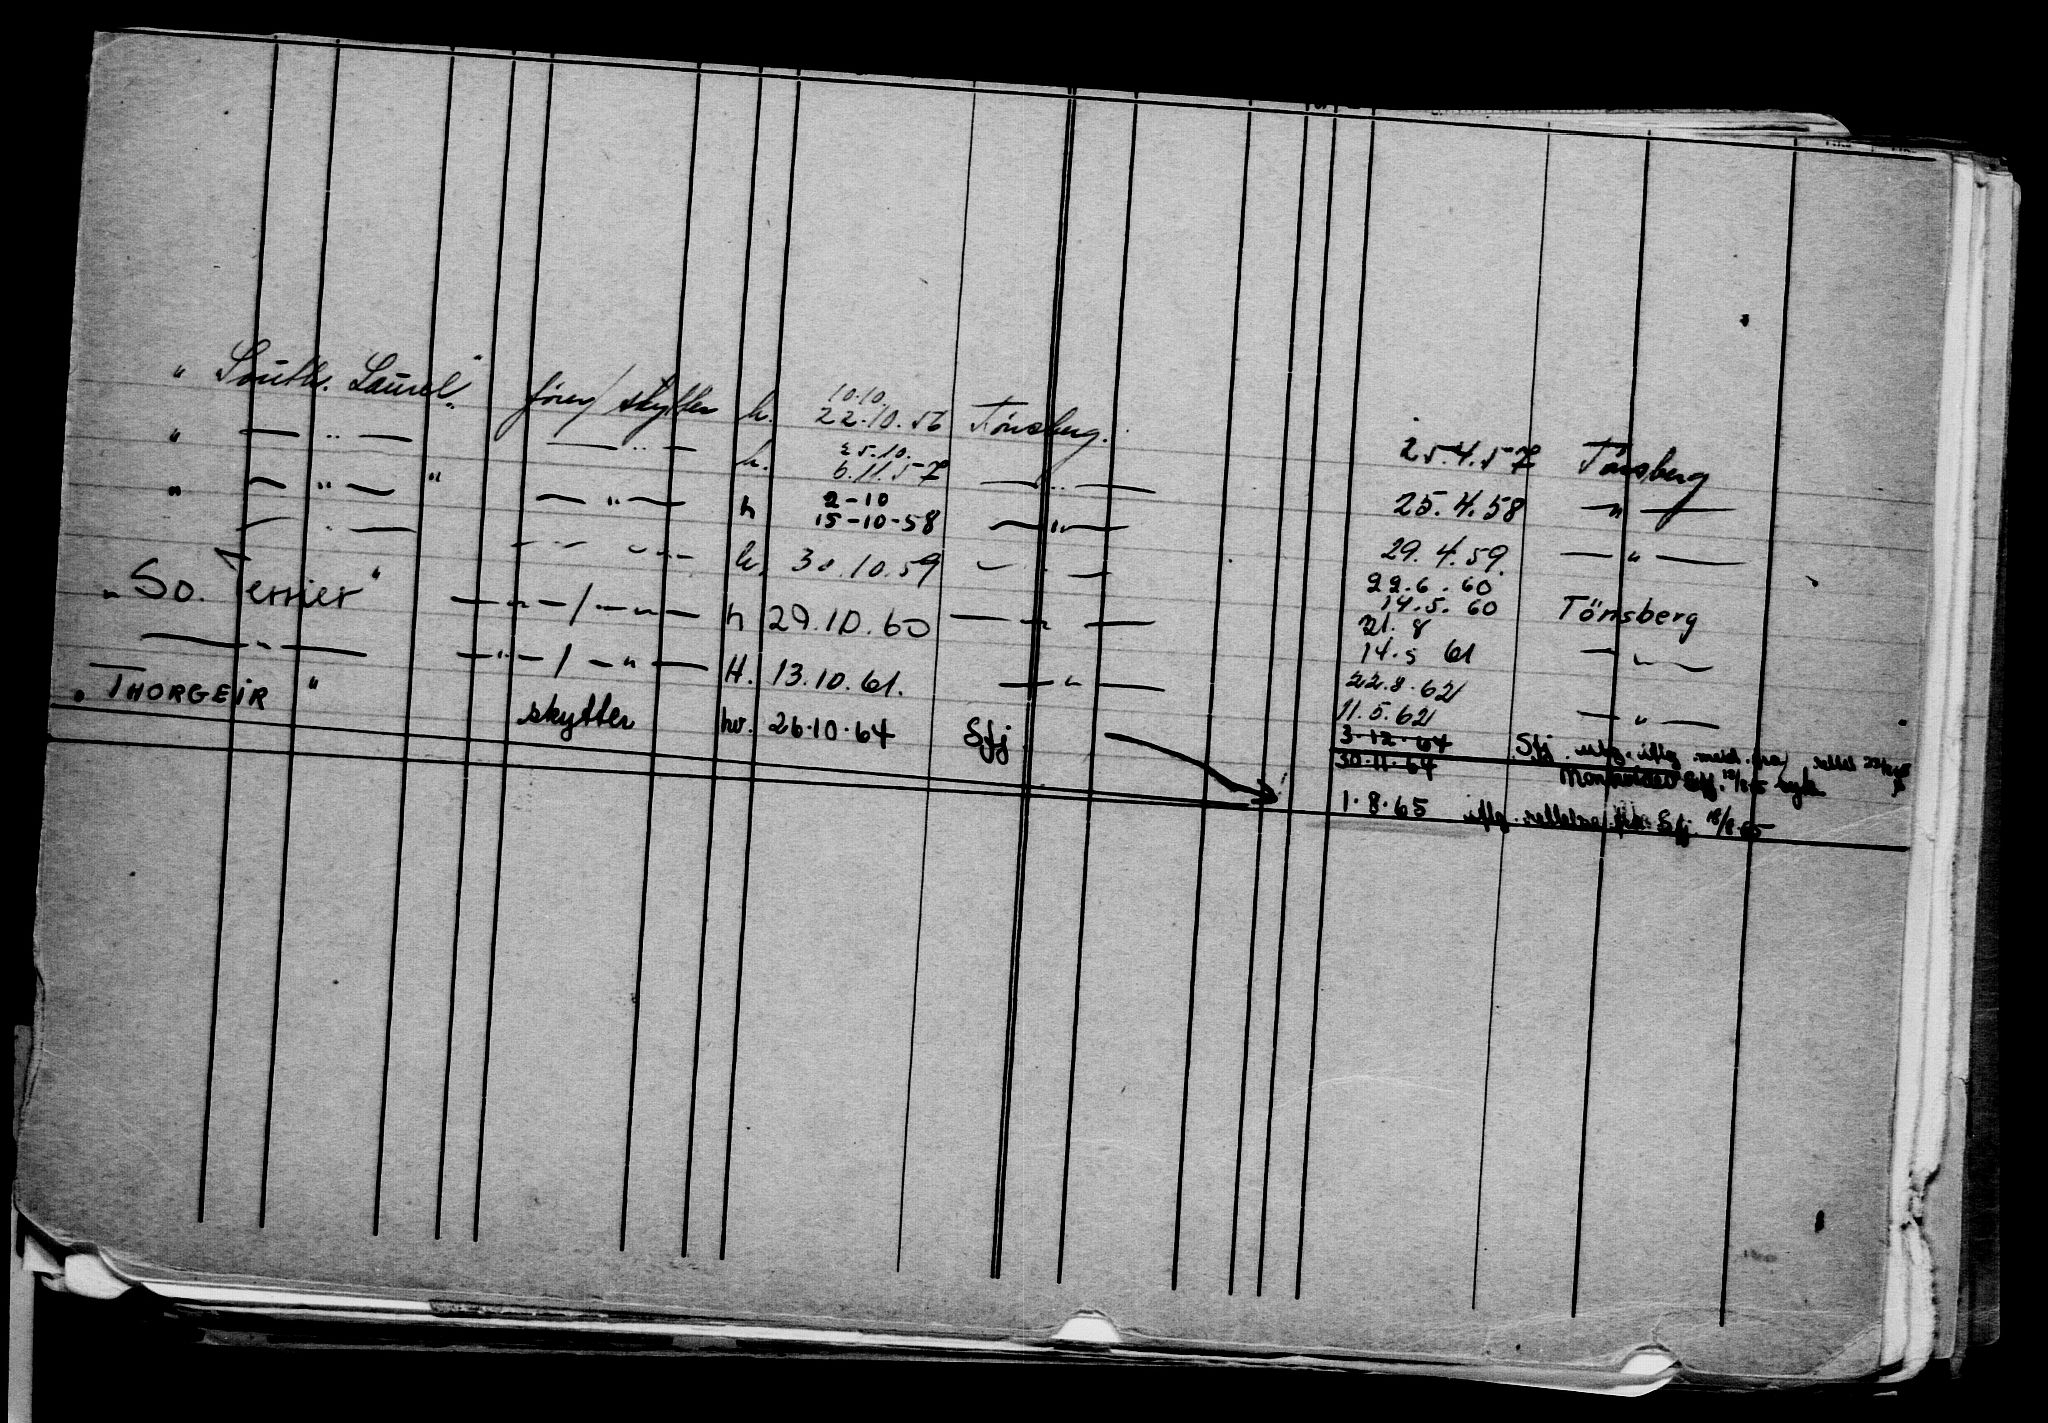 " South. Laurel." fører/skytter h. 10.10. 22.10.56 Tönsberg. 25.4.57 Tönsberg
" — " — — " — h. 25.10. 6.11.57 — " — 25.4.58 — " —
" — " — " — " — h 2-10 15-10-58 — " — 29.4.59. — " —
— " — — " — h. 30.10.59 — " — 22.6.60 14.5.60 Tönsberg
" So. Terrier" — " — / — " — h 29.10.60 — " — 21.8 14.5 61 — " —
— " — — " — / — " — H. 13.10.61. — " — 22.8.62 11.5.62 — " —
" THORGEIR " skytter hv. 26.10.64 Sfj 3.12.64 Sfj.
30.11.64
1.8.65 iflg. Sfj. 18/8.65